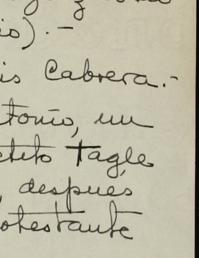 io). -
is Cabrera. -
tonio, un
Tagle
, después
otestante